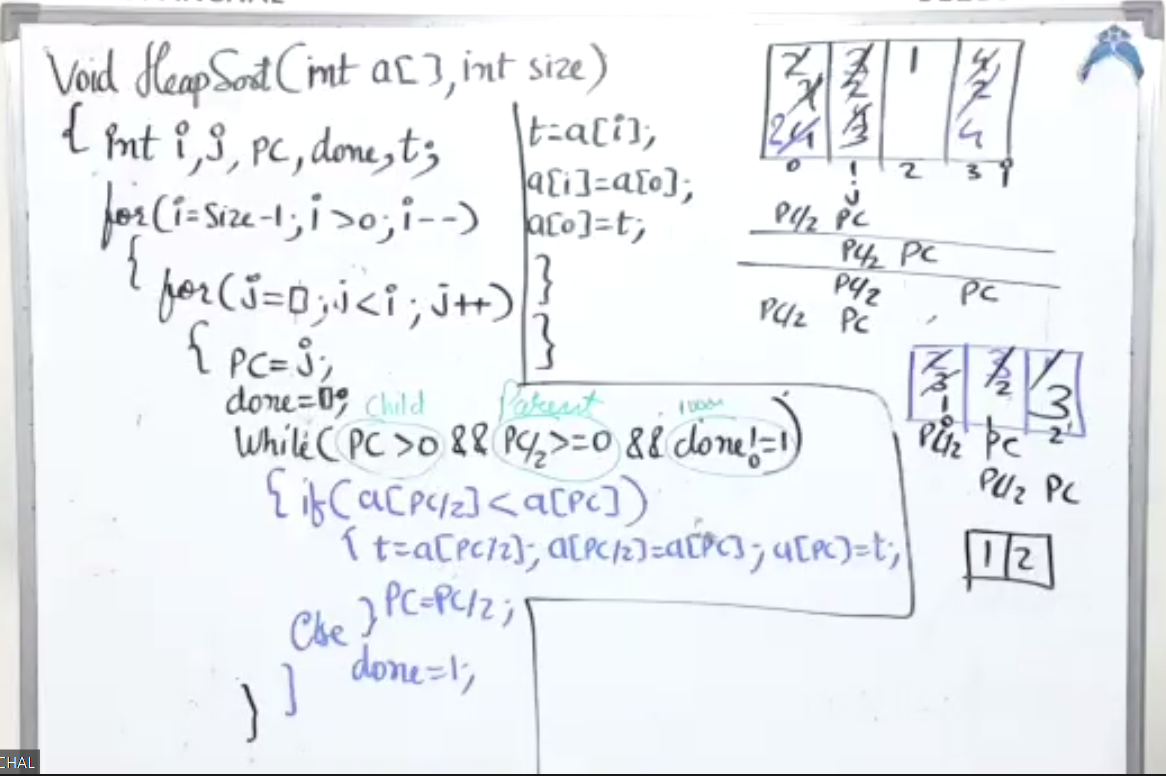 Void HeapSort(int a[], int size)
{ int i, j, PC, done, t;
for(i=Size-1; i>0; i--)
{
for(j=0; j<i; j++)
{ PC=j;
done=0;
Child Parent
While(PC>0 && PC/2>=0 && done!=1)
{ if(a[PC/2]<a[PC])
{ t=a[PC/2]; a[PC/2]=a[PC]; a[PC]=t;
} PC=PC/2;
Else
done=1;
}
}
t=a[i];
a[i]=a[0];
a[0]=t;
}
}
1
2
3
4
0 1 2 3 i
j
PC/2 PC
PC/2 PC
PC/2 PC
PC/2 PC
3
1 2
0 2
PC/2 PC
PC/2 PC
1 2
CHAL